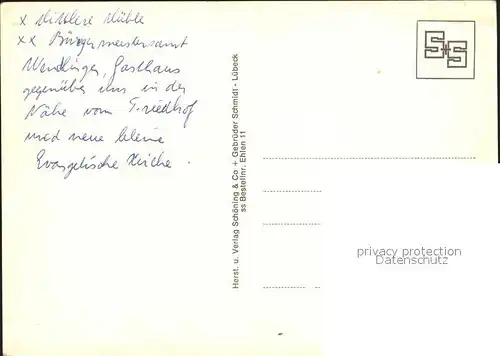 x Mittlere Mühle
xx Bürgermeistersamt
Wendlinger, Gasthaus
gegenüber uns in der
Nähe vom Friedhof
und neue kleine
Evangelische Kirche.
Herst. u. Verlag Schöning & Co + Gebrüder Schmidt - Lübeck
ss Bestellnr. Ehlen 11
S+S
privacy protection
Datenschutz